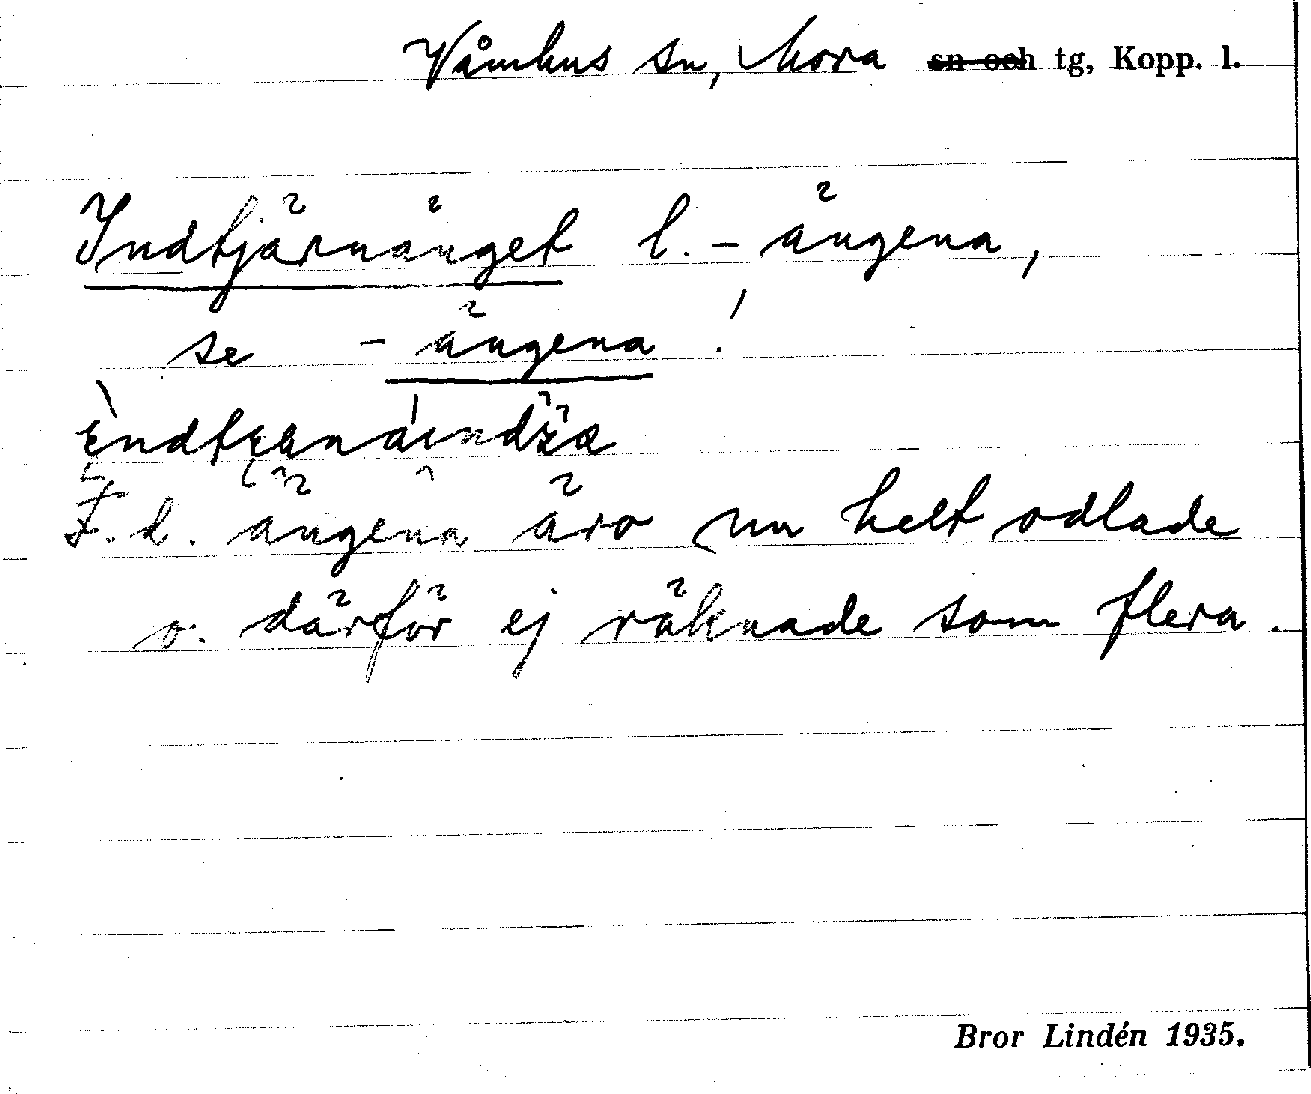 Våmhus sn, Mora sn och tg, Kopp. l.
Indtjärnänget l. - ängena,
se - ängena !
F. d. ängena äro nu helt odlade
o. därför ej räknade som flera.
Bror Lindén 1935.